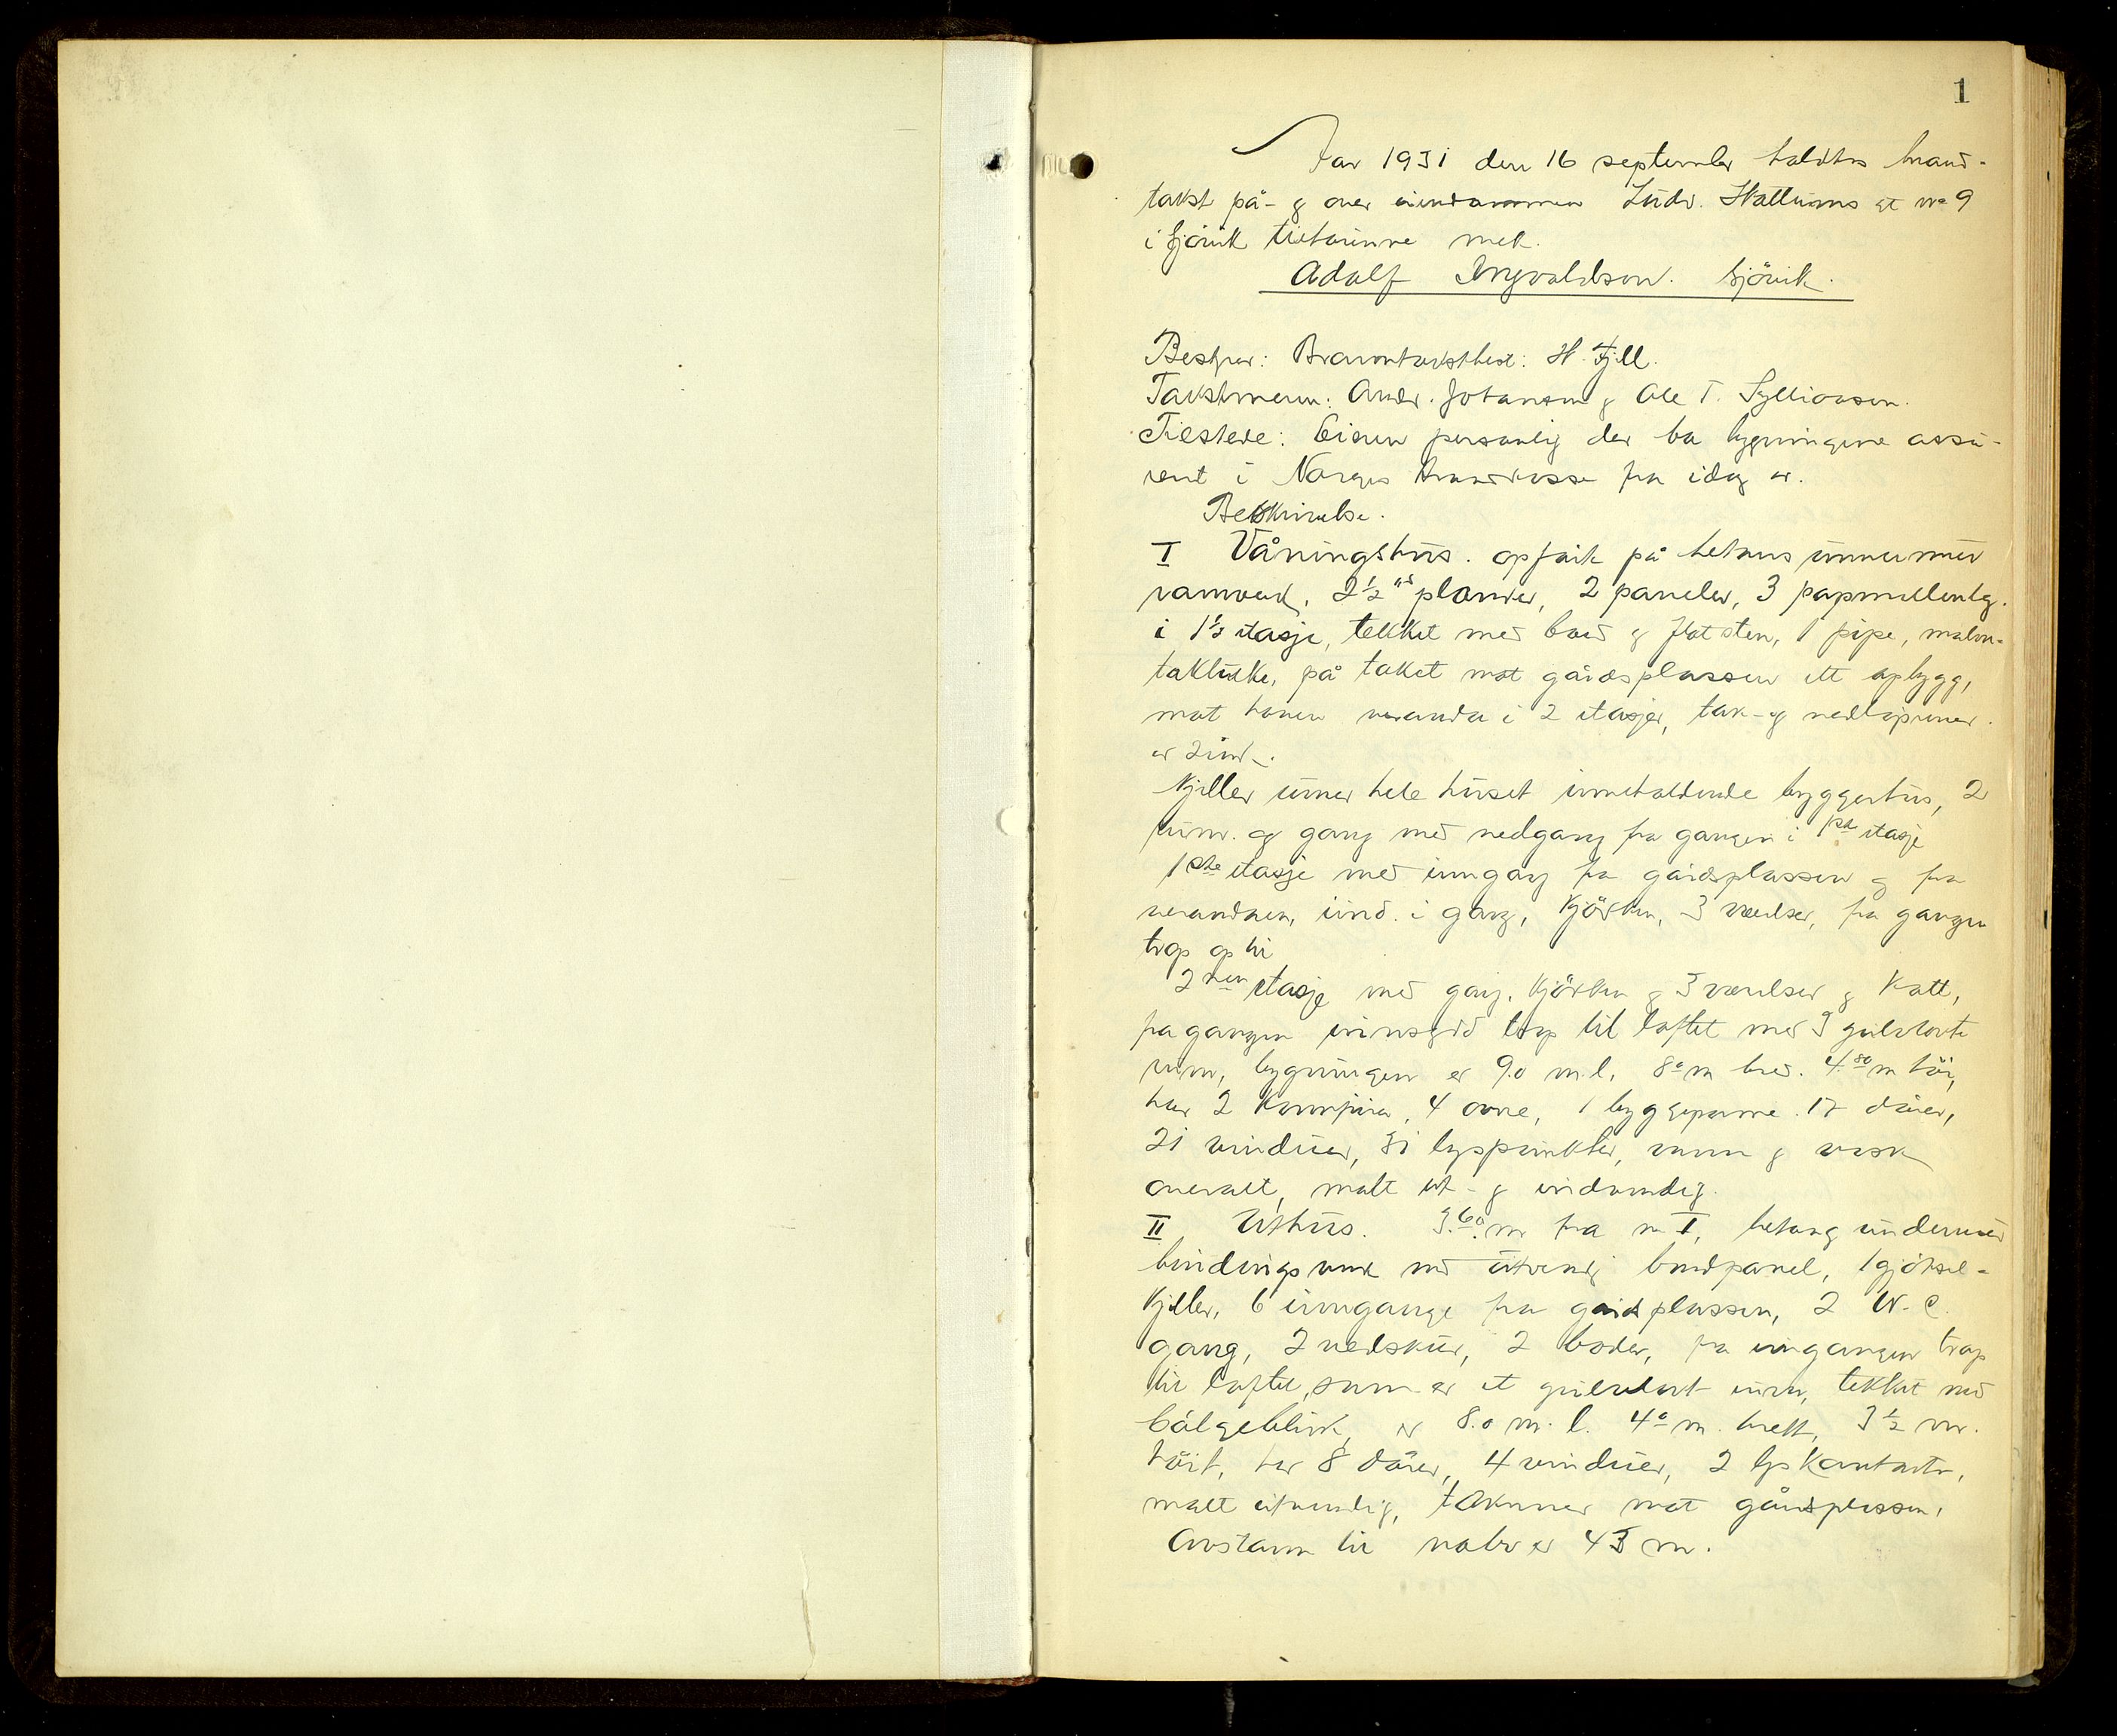 1
Aar 1931 den 16 september holdtes brand-
takst på- & over eiendommen Ludv. Hattums gt no 9
i Gjövik tilhörende mek.
Adolf Ingvaldson. Gjövik.
Bestyrer: Branntakstbest: H. Fjell.
Takstmenn: Andr. Johansen & Ole T. Sylliaasen.
Tilstede: Eieren personlig der ba bygningene assu-
rert i Norges Brandkasse fra idag av.
Beskrivelse.
I Våningshus. opført på betongs unnermur
ramverk, 2½" planker, 2 paneler, 3 papmellemlg.
i 1½ etasje, tekket med bord & flatsten, 1 pipe,
takluke, på taket mot gårdsplassen ett opbygg,
mot haven veranda i 2 etasjer, tak- & nedløpsrenner.
av zink.
Kjeller unner hele huset inneholdende bryggerhus, 2
rum. og gang med nedgang fra gangen i 1ste etasje
1ste etasje med inngang fra gårdsplassen & fra
verandaen, innd. i gang, kjökken, 3 værelser, fra gangen
trap op til
2nen etasje med gang, kjökken & 3 værelser & kott,
fra gangen innvendig trap til loftet med 3 gulvlagte
rum, bygningen er 9.0 m. l. 8.0 m bred. 4.80 m höi,
har 2 komfyrer, 4 ovne, 1 bryggepanne. 17 dörer,
21 vinduer, 31 lyspunkter, vann & vask
overalt, malt ut- & indvendig.
II Uthus. 3.60 m fra no I, betong undermur
bindingsverk med utvendig bordpanel, 1 gjödsel-
kjeller, 6 innganger fra gårdsplassen, 2 W.C.
gang, 2 vedskur, 2 boder, fra inngangen trap
til loftet, som er et gulvlagt rum, tekket med
bölgeblikk, er 8.0 m. l. 4.0 m. brett, 3½ m.
höit, har 8 dörer, 4 vinduer, 2 lyskontakter,
malt utvendig, takrenner mot gårdsplassen,
Avstann til nabo er 4.5 m.